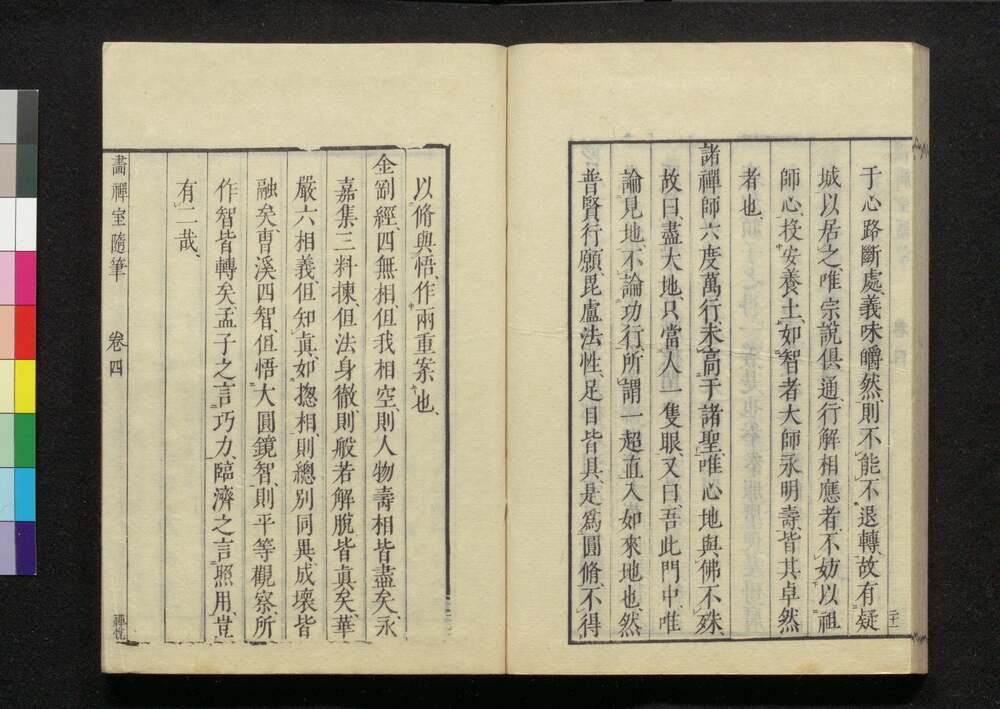 于心路斷處、義味嚼然、則不能不退轉、故有疑
城以居之、唯宗說俱通、行解相應者、不妨以祖
師心、投安養土、如智者大師永明壽、皆其卓然
者也、
諸禪師六度萬行、未高于諸聖、唯心地與佛不殊、
故曰、盡大地只當人一隻眼、又曰、吾此門中、唯
論見地、不論功行、所謂一超直入如來地也、然
普賢行願、毘盧法性、足目皆具、是爲圓脩、不得
二十一
以脩與悟、作兩重案也、
金剛經四無相、但我相空、則人物壽相皆盡矣、永
嘉集三料揀、但法身徹、則般若解脫皆眞矣、華
嚴六相義、但知眞如揔相、則總別同異、成壞皆
融矣、曹溪四智、但悟大圓鏡智、則平等觀察、所
作智皆轉矣、孟子之言巧力、臨濟之言照用、豈
有二哉、
畵禪室隨筆 卷四